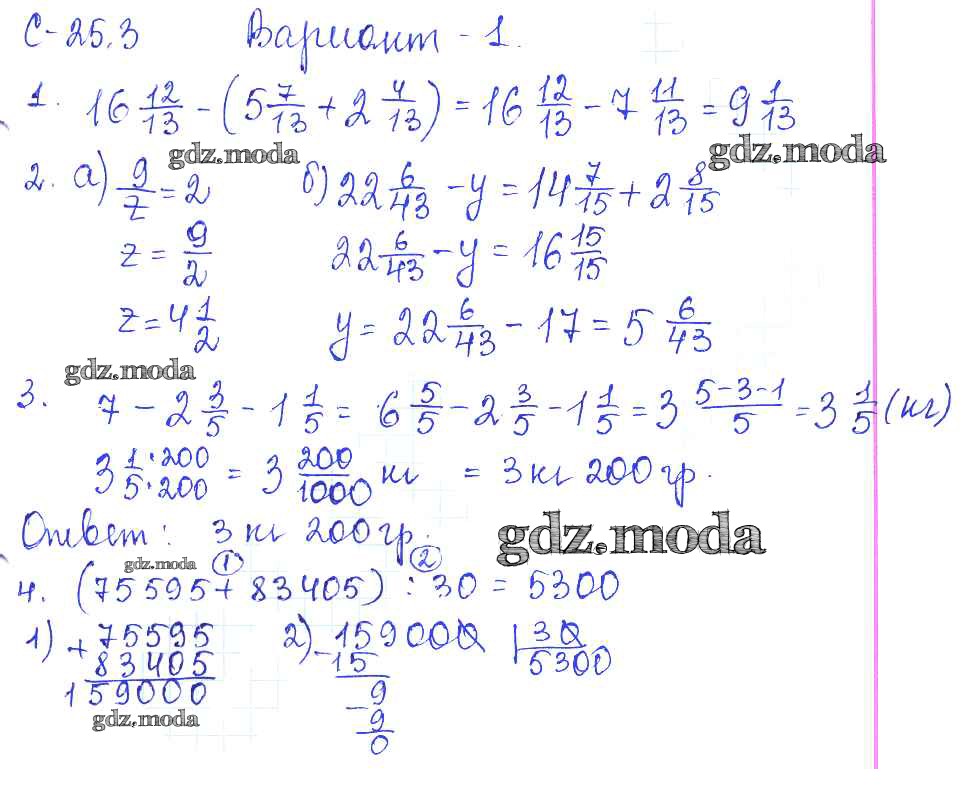 С-25.3 Вариант - 1.
1. 16 12/13 - (5 7/13 + 2 4/13) = 16 12/13 - 7 11/13 = 9 1/13
gdz.moda gdz.moda
2. а) 9/z = 2 б) 22 6/43 - y = 14 7/15 + 2 8/15
z = 9/2 22 6/43 - y = 16 15/15
z = 4 1/2 y = 22 6/43 - 17 = 5 6/43
gdz.moda
3. 7 - 2 3/5 - 1 1/5 = 6 5/5 - 2 3/5 - 1 1/5 = 3 5-3-1/5 = 3 1/5 (кг)
3 1·200/5·200 = 3 200/1000 кг = 3 кг 200 гр.
Ответ: 3 кг 200 гр.
gdz.moda
gdz.moda 1 2
4. (75595 + 83405) : 30 = 5300
1) + 75595 2) - 159000 30
83405 15 5300
159000 9
gdz.moda - 9
0